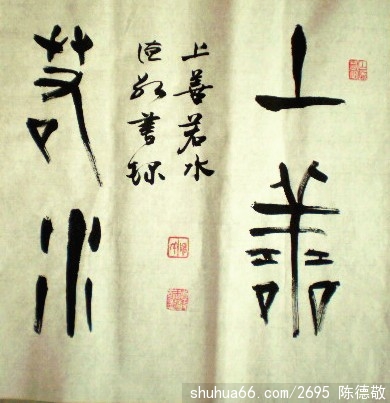 上善
若水
上善若水
德敬書
shuhua66.com/2695 陈德敬